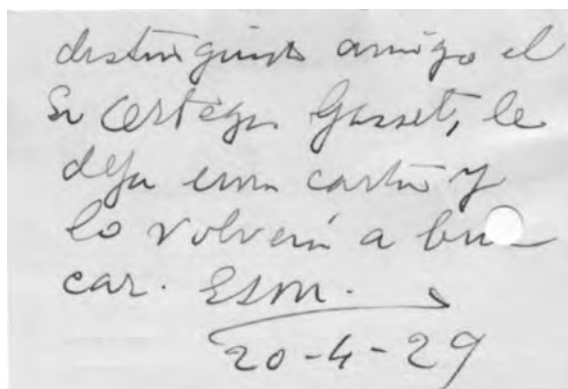 distinguido amigo el
Sr Ortega Gasset, le
deja una carta y
lo volverá a bu-
car. ESM.
20-4-29